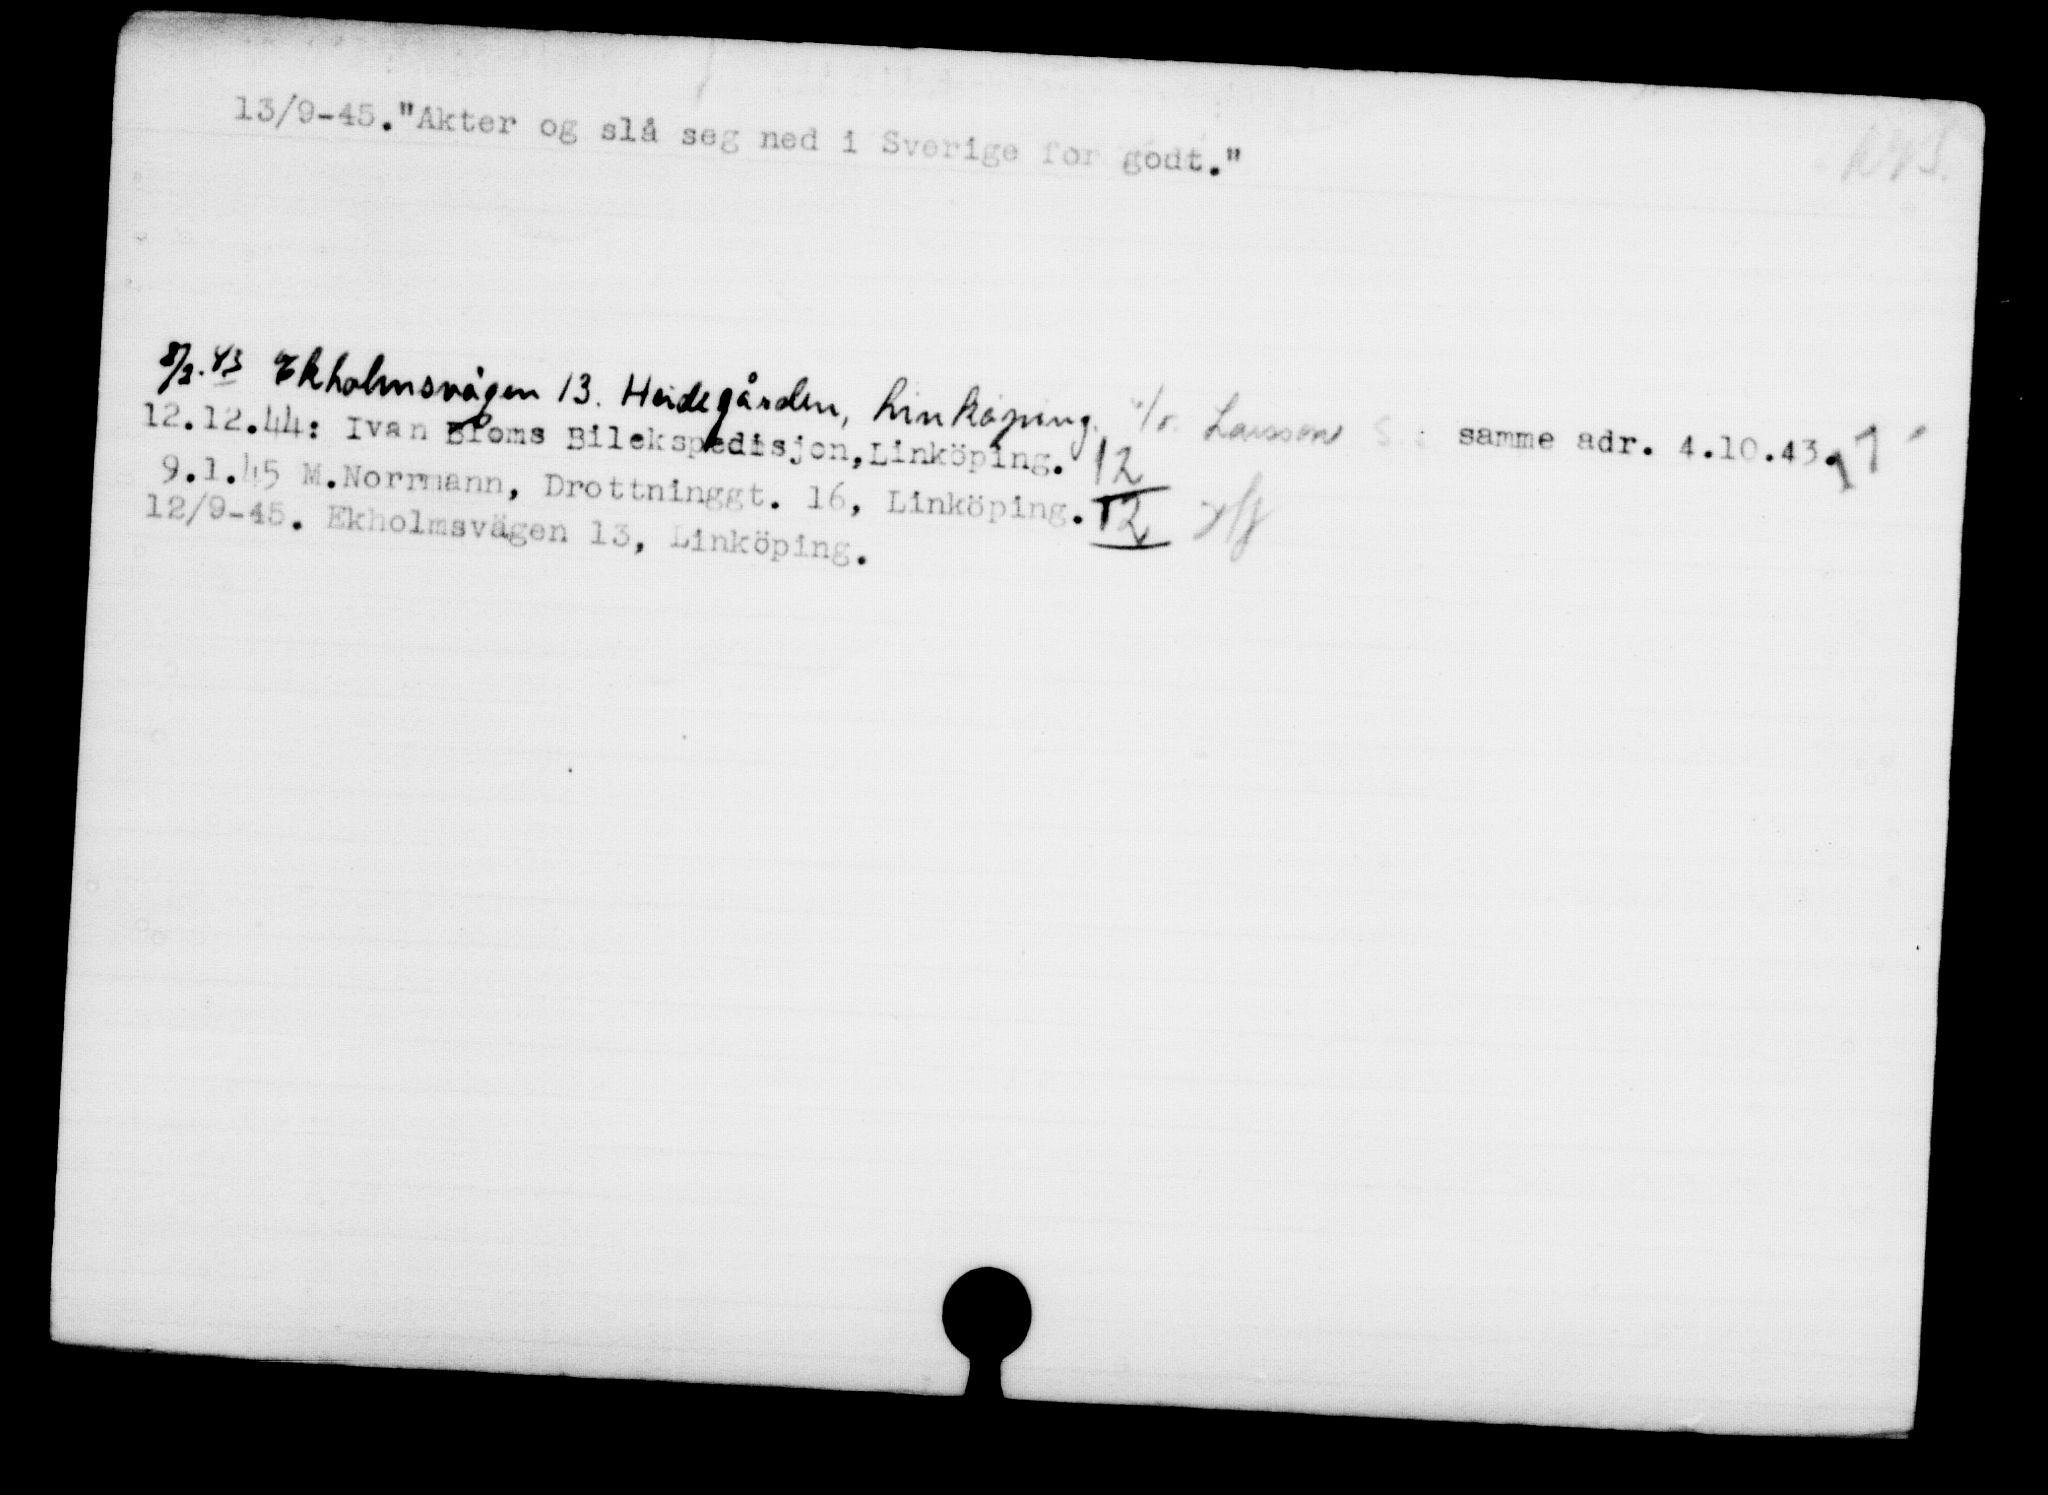 13/9-45."Akter og slå seg ned i Sverige for godt."
8/2.43 Ekholmsvägen 13. Heidegården, Linköping. Larsson samme adr. 4.10.43. 17
12.12.44: Ivan Bloms Bilekspedisjon,Linköping. 12
9.1.45 M.Norrmann, Drottninggt. 16, Linköping. 12
12/9-45. Ekholmsvägen 13, Linköping.